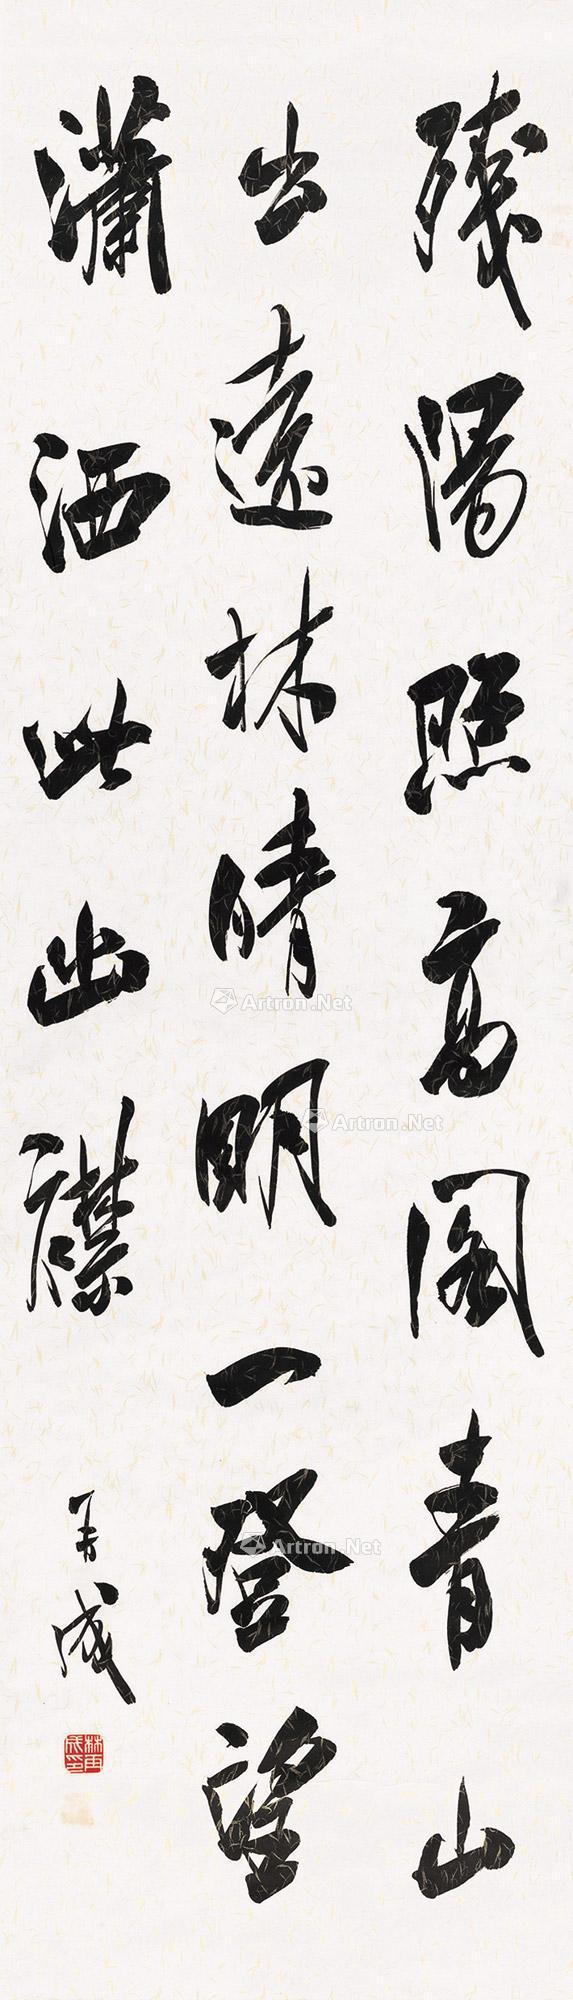 残陽照高閣青山
出遠林晴明一登望
瀟洒此幽襟
再成
林再成印
Artron.Net
Artron.Net
Artron.Net